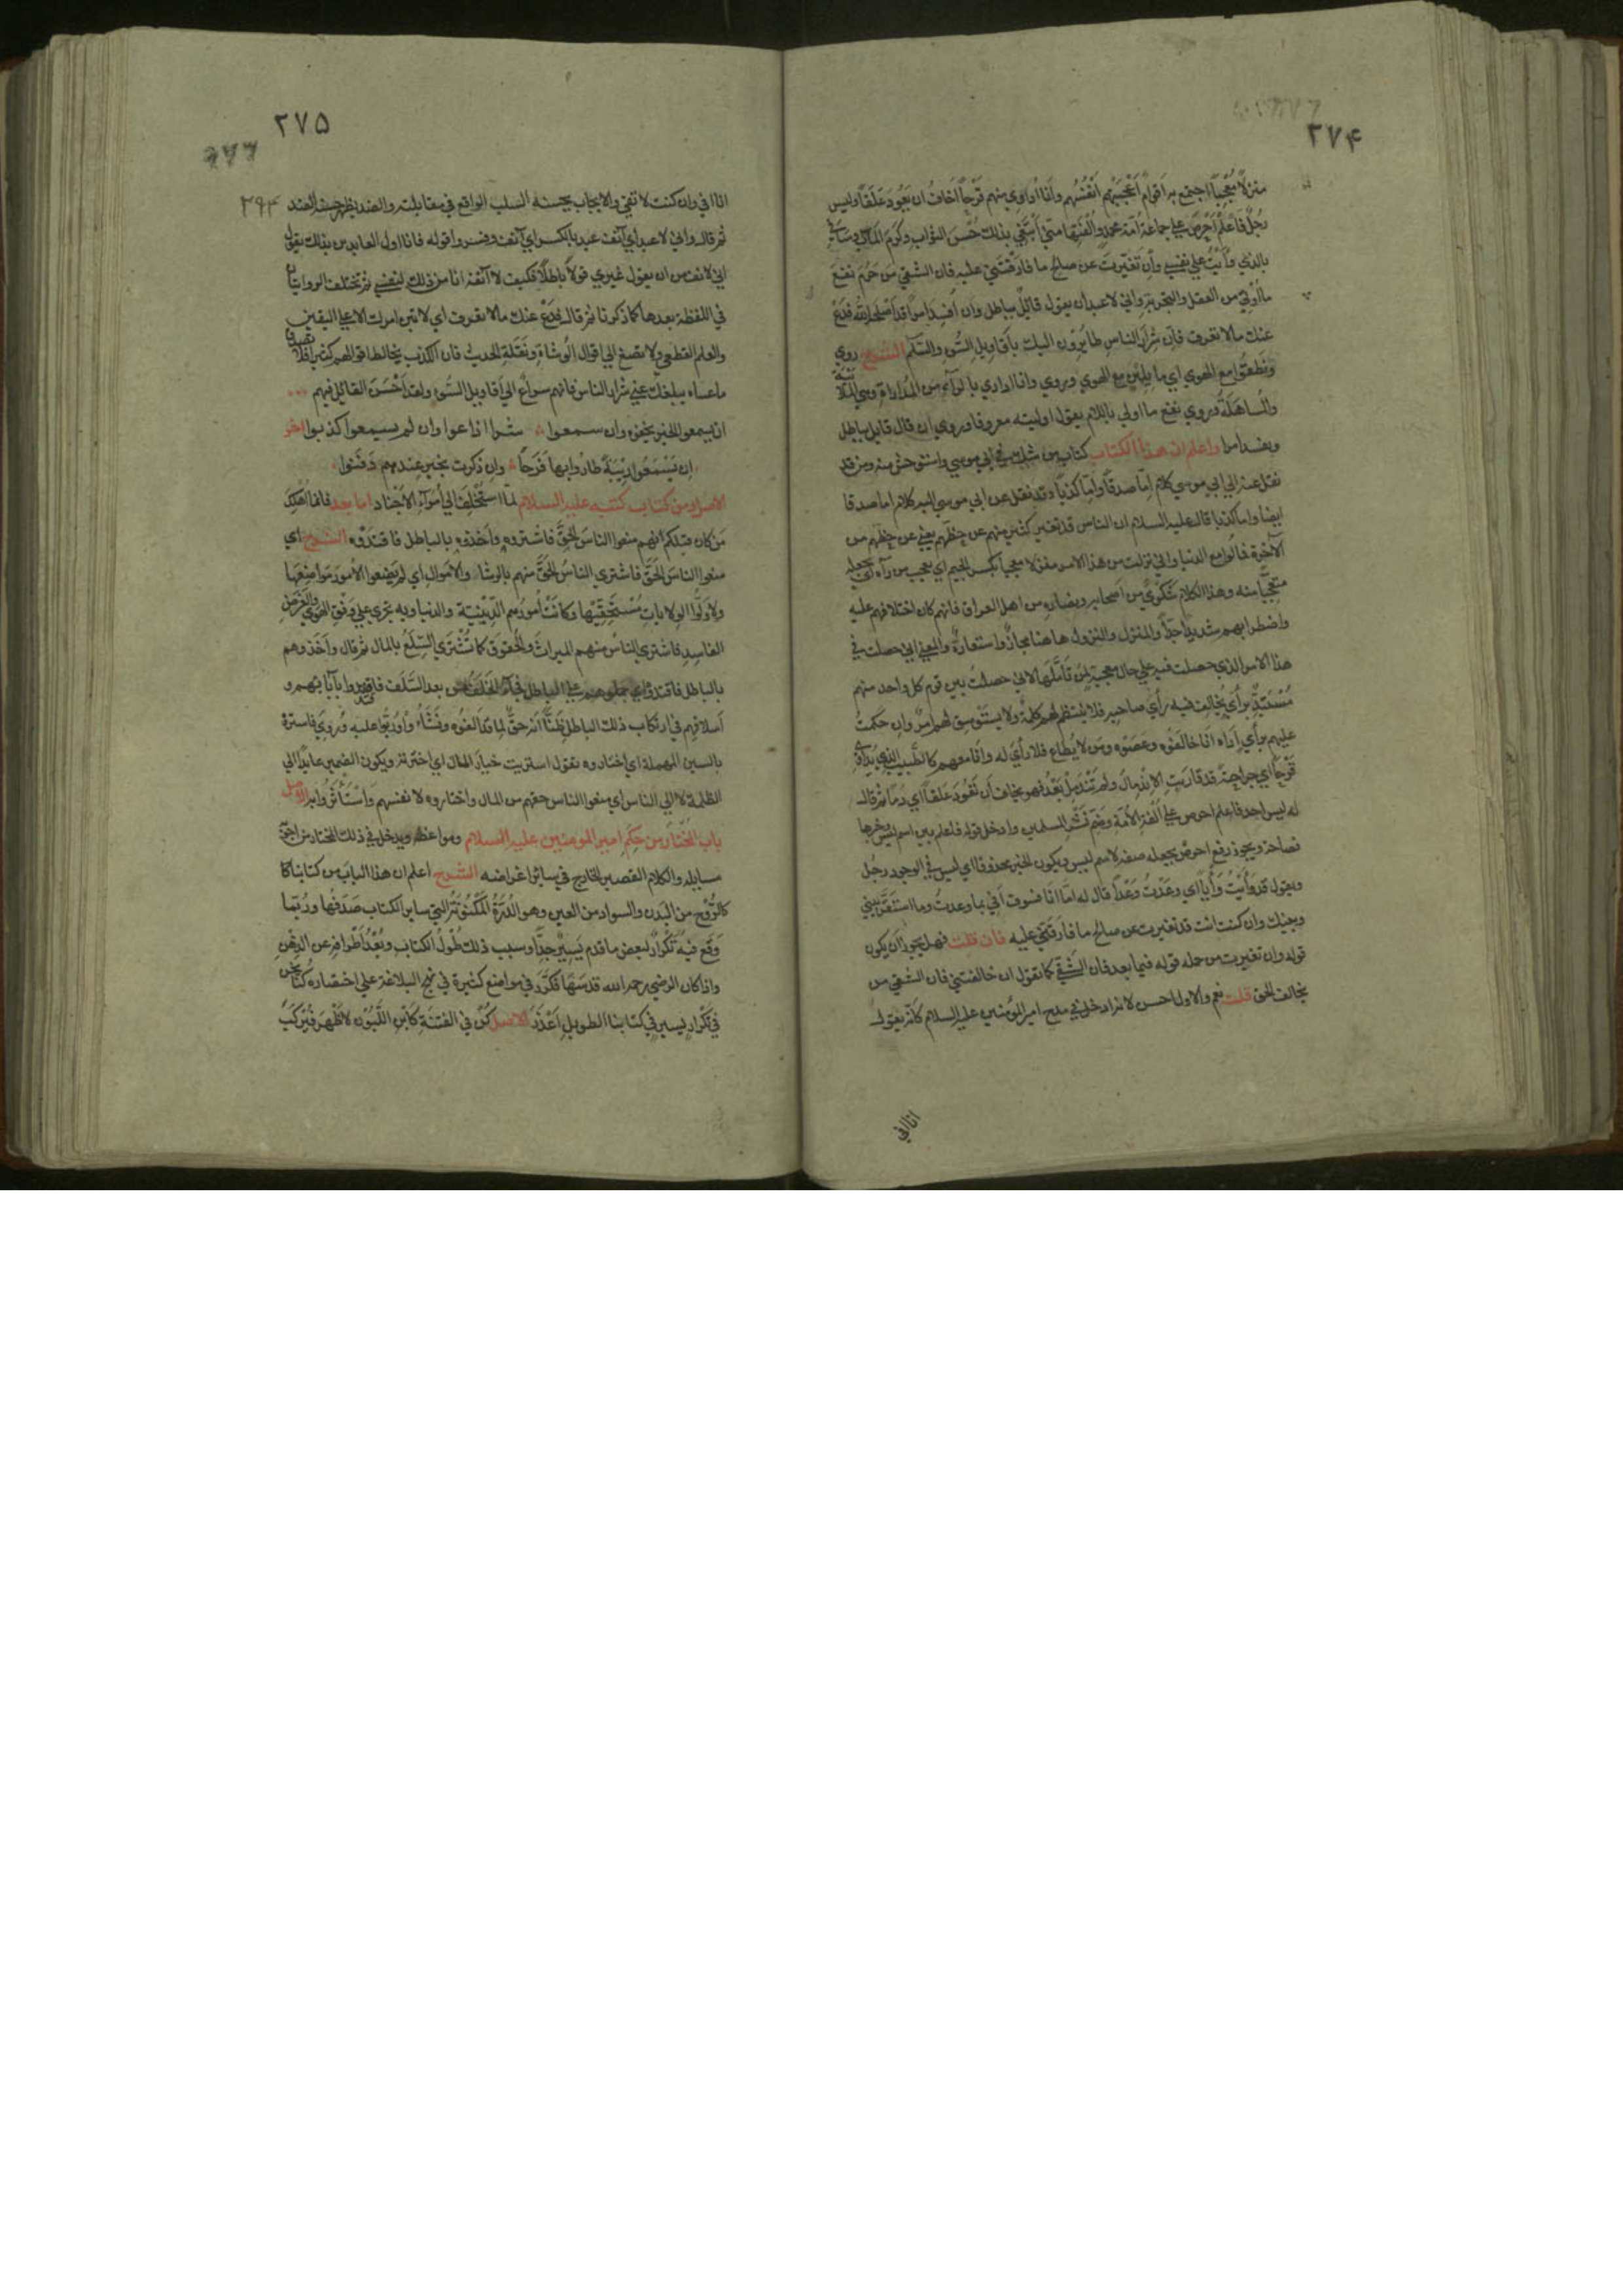 ۲۷۴
منزلا مُعْجِبًا اجتمع به اَقوامٌ اَعْجَبَتْهم اَنْفُسُهم وأنا اُداوِي منهم قَرْحًا اَخافُ ان يَعُودَ عَلَقًا وليس
رجُلٌ فاعْلَمْ اَحْرَصَ علي جماعة اُمّة محمدٍ واُلْفَتِها منّي اَبتَغي بذلك حُسْنَ الثواب وكَرَمَ المآب وساَفي
بالذي وأَيْتُ علي نفسي وإن تَغَيّرتَ عن صالح ما فارقتني عليه فان الشقي مَن حُرِمَ نفعَ
ما اُوتِيَ من العقل والتجربة واني لاعبد ان يقول قائلٌ بباطل وان اُفسِدَ امراً قد اَصلحه الله فدَعْ
عنك مالا تعرف فانّ شِرارَ الناس طائرون اليك بأقاويل السُّوء والسّلم الشرح روي
ونَطَقوا مع الهوي اي مائلين مع الهوي وروي وانا اداري بالراء من المُداراة وهي الملاينة
والمُساهَلَةُ وروي نفع ما اولي باللام يقول اوليته معروفا وروي ان قال قايل بباطل
ويفسد امرا واعلم ان هذا الكتاب كتاب من شك في ابي موسي واستوحش منه ومن قد
نقل عنه الي ابي موسي كلام إمّا صدقًا وإمّا كذبًا وقد نقل عن ابي موسي اليه كلام اما صدقا
ايضا واما كذبا قال عليه السلام ان الناس قد تغير كثير منهم عن حظّهم يعني عن حظهم من
الآخرة فمالوا مع الدنيا واني نزلت من هذا الامر منزلا معجبا بكسر الجيم اي يعجب من رآه اي يجعله
متعجّبًا منه وهذا الكلام شَكْوَي من اصحابه ونصاره من اهل العراق فانهم كان اختلافهم عليه
واضطرابهم شديدًا جدًّا والمنزل والنزول هاهنا مجازٌ واستعارةٌ والمعني اني حصلت في
هذا الامر الذي حصلت فيه علي حال معجبة لمن تأمّلها لاني حصلتُ بين قوم كل واحد منهم
مُسْتَبِدٌّ برأي يُخالِف فيه رأي صاحبه فلا ينتظم لهم كلمةٌ ولا يستوسق لهم امرٌ وان حكمتُ
عليهم برأي اَراه انا خالَفوه وعَصَوه ومَن لا يُطاع فلا رأيَ له وانا معهم كالطبيب الذي يُداوي
قَرْحًا اي جراحةً قد قاربت الاندمالَ ولم تَنْدَمِل بَعْدُ فهو يخاف أن تعُودَ عَلَقًا اي دمًا ثم قال
له ليس احد فاعلم احرص علي اُلفة الاُمّة وضمّ نَشْرِ المسلمين وادخل قوله فاعلم بين اسم ليس وخبرها
فصاحة ويجوز رفع احرص بجعله صفة لاسم ليس ويكون الخبر محذوفا اي ليس في الوجود رجُل
ويقول قد وَأَيْتُ وَأْيًا اي وَعَدْتُ وَعْدًا قال له امّا انا فسوف اَفي بما وعدتُ وما استَقَرّ بيني
وبينك وان كنت انت قد تغيرت عن صالح ما فارقتني عليه فان قلت فهل يجوز ان يكون
قوله وان تغيرت من جمله قوله فيما بعد فان الشقي كما تقول ان خالفتني فان الشقي من
يخالف الحق قلت نعم والاول احسن لانه ادخل في مدح امير المؤمنين عليه السلام كأنه يقول
انا افي
۲۷۵
۲۹۴
انا افي وان كنت لا تفي والايجاب يحسنه السلب الواقع في مقابلته والضد يظهر حسنه الضد
ثم قال واني لاعبد اي آنف عبد بالكسر اي آنف وفسروا قوله فانا اول العابدين بذلك يقول
اني لآنف من ان يقول غيري قولا باطلا فكيف لا آنف انا من ذلك لنفسي ثم تختلف الروايتان
في اللفظة بعدها كما ذكرنا ثم قال فدَعْ عنك مالا تعرف اي لا تبن امرك الا علي اليقين
والعلم القطعي ولا تصغ الي اقوال الوُشاة ونَقَلَةِ الحديث فان الكذب يخالط اقوالهم كثيرا فلا تصدق
ما عساه يبلغك عني شرار الناس فانهم سراع الي اقاويل السُّوء ولقد اَحْسَنَ القائل فيهم
ان يسمعوا الخير يخفوه وان سمعوا شرا اذاعوا وان لم يسمعوا كذبوا اخر
ان يَسْمَعُوا رِيبَةً طارُوا بها فَرَحًا وإن ذُكِرتُ بخيرٍ عندهم دَفَنُوا
الاصل ومن كتاب كتبه عليه السلام لمّا استُخْلِف الي اُمَراء الاَجْناد اما بعد فانما اَهْلَكَ
مَن كان قبلكم انهم منعوا الناسَ الحقَّ فاشتروه واَخذوهم بالباطل فاقتَدَوْه الشرح اي
منعوا الناسَ الحَقَّ فاشتري الناسُ الحقَّ منهم بالرشاء والاموال اي لم يضعوا الاُمورَ مَواضِعَها
ولا وَلَّوا الولاياتِ مُسْتَحِقّيها وكانتْ اُمورُهم الدّينيّة والدنياوية تجري علي وَفْقِ الهوي والغرض
الفاسد فاشتري الناسُ منهم الميراث والحقوق كما تُشْتَري السِّلَعُ بالمال ثم قال واَخَذوهم
بالباطل فاقتدوه اي حملوهم علي الباطل فجاء الخَلَفُ من بعد السَّلَف فاقتدوا بآبائهم و
اَسلافهم في ارتكاب ذلك الباطل ظَنًّا اَنّه حقٌّ لِما قد اَلِفوه ونَشَأُوا ورُبُّوا عليه ورُوي فاستروه
بالسين المهملة اي اختاروه تقول استريت خيار المال اي اخترته ويكون الضمير عايدًا الي
الظلمة لا الي الناس اي منعوا الناس حقهم من المال واختاروه لانفسهم واسْتَأْثَروا به الاصل
باب المُختار من حِكَم امير المومنين عليه السلام ومواعظه ويدخل في ذلك المختار من اجوبة
مسايله والكلام القصير الخارج في ساير اغراضه الشرح اعلم ان هذا الباب من كتابنا
كالرُّوح من البَدَن والسواد من العين وهو الدُّرّةُ المَكْنُونةُ التي ساير الكتاب صَدَفُها ورُبَّما
وَقَع فيه تَكْرارٌ لبعض ما تقدم يَسِيرٌ جدًّا وسبب ذلك طُولُ الكتاب وبُعْدُ اَطرافه عن الذِّهن
واذا كان الرضي رحمه الله قد سَها فكَرَّر في مواضع كثيرة في نهج البلاغة علي اختصاره كُنّا نحن
في تَكْرارٍ يسيرٍ في كتابنا الطويلِ اَعْذَرَ الاصل كُنْ في الفتنَةِ كابْنِ اللَّبُونِ لا ظَهْرَ فيُرْكَبَ